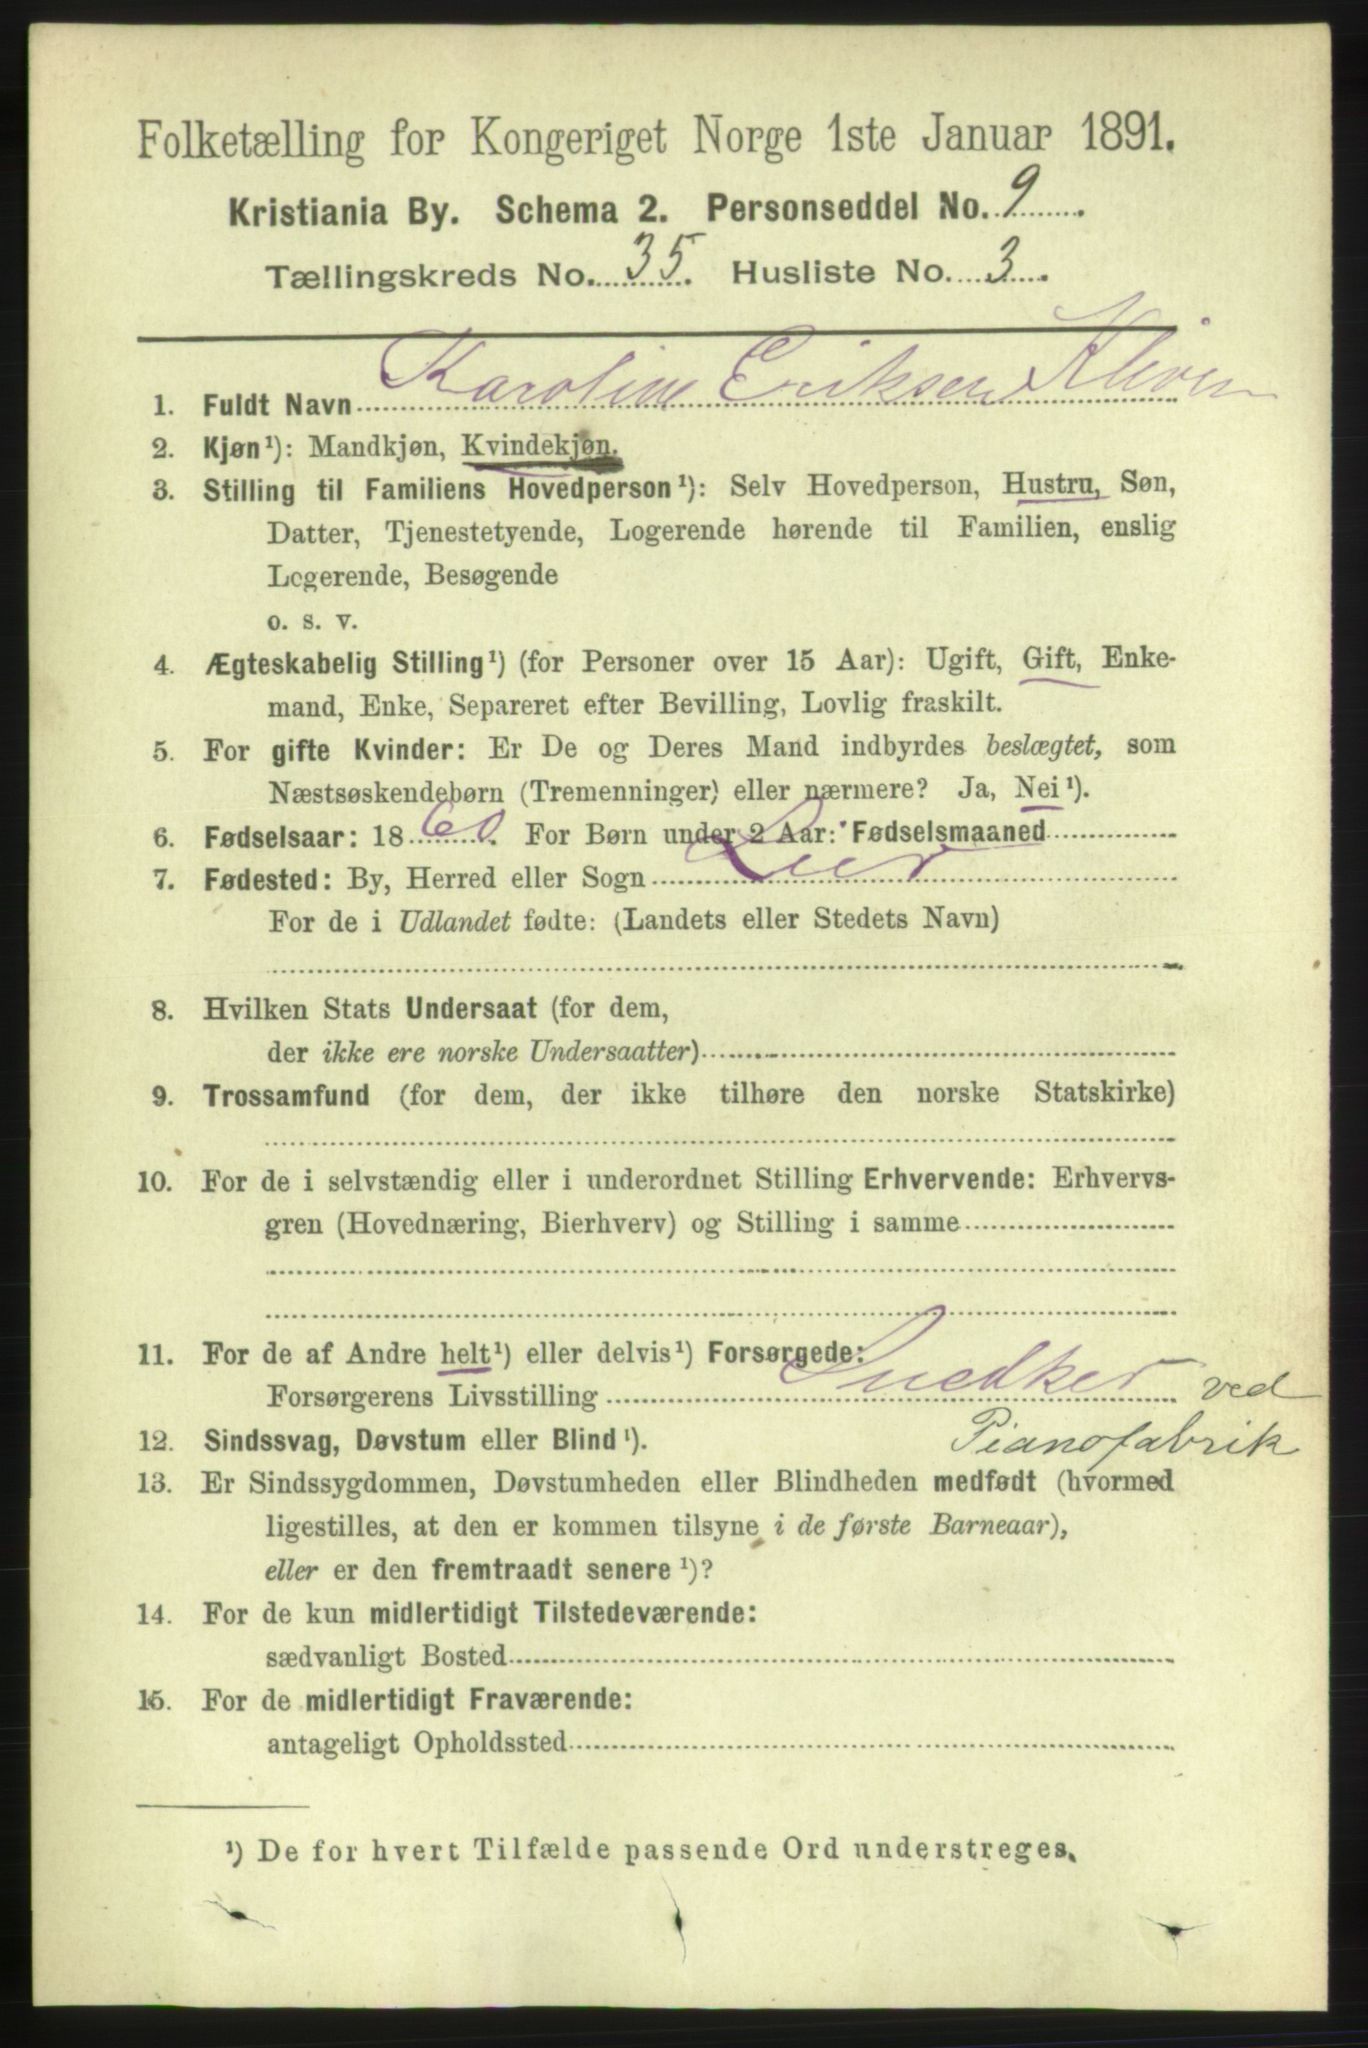 Folketælling for Kongeriget Norge 1ste Januar 1891.
Kristiania By. Schema 2. Personseddel No. 9
Tællingskreds No. 35. Husliste No. 3.
1. Fuldt Navn Karoline Eriksen Kliven
2. Kjøn¹): Mandkjøn, Kvindekjøn.
3. Stilling til Familiens Hovedperson¹): Selv Hovedperson, Hustru, Søn,
Datter, Tjenestetyende, Logerende hørende til Familien, enslig
Logerende, Besøgende
o. s. v.
4. Ægteskabelig Stilling¹) (for Personer over 15 Aar): Ugift, Gift, Enke-
mand, Enke, Separeret efter Bevilling, Lovlig fraskilt.
5. For gifte Kvinder: Er De og Deres Mand indbyrdes beslægtet, som
Næstsøskendebørn (Tremenninger) eller nærmere? Ja, Nei¹).
6. Fødselsaar: 1860. For Børn under 2 Aar: Fødselsmaaned
7. Fødested: By, Herred eller Sogn Lier
For de i Udlandet fødte: (Landets eller Stedets Navn)
8. Hvilken Stats Undersaat (for dem,
der ikke ere norske Undersaatter)
9. Trossamfund (for dem, der ikke tilhøre den norske Statskirke)
10. For de i selvstændig eller i underordnet Stilling Erhvervende: Erhvervs-
gren (Hovednæring, Bierhverv) og Stilling i samme
11. For de af Andre helt¹) eller delvis¹) Forsørgede:
Forsørgerens Livsstilling Snedker ved
Pianofabrik
12. Sindssvag, Døvstum eller Blind¹).
13. Er Sindssygdommen, Døvstumheden eller Blindheden medfødt (hvormed
ligestilles, at den er kommen tilsyne i de første Barneaar),
eller er den fremtraadt senere¹)?
14. For de kun midlertidigt Tilstedeværende:
sædvanligt Bosted
15. For de midlertidigt Fraværende:
antageligt Opholdssted
¹) De for hvert Tilfælde passende Ord understreges.